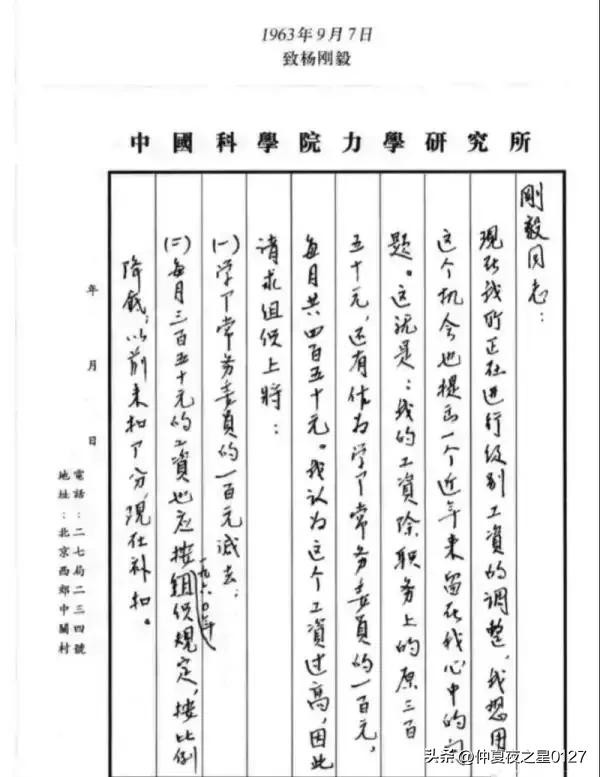 1963年9月7日
致杨刚毅
中國科學院力學研究所
剛毅同志：
现在我所正在进行级别工資的调整，我想用
这个机会也提出一个近年来留在我心中的问
题。这就是：我的工資除职务上的原三百
五十元，还有作为学部常务委员的一百元，
每月共四百五十元。我认为这个工資过高，因此
请求组织上將：
(一) 学部常务委员的一百元减去；
一九六〇年
(二) 每月三百五十元的工資也应按组织规定，按比例
降低；以前未扣部分，现在补扣。
年 月 日
電話：二七局二三四號
地址：北京西郊中關村
头条@仲夏夜之星0127